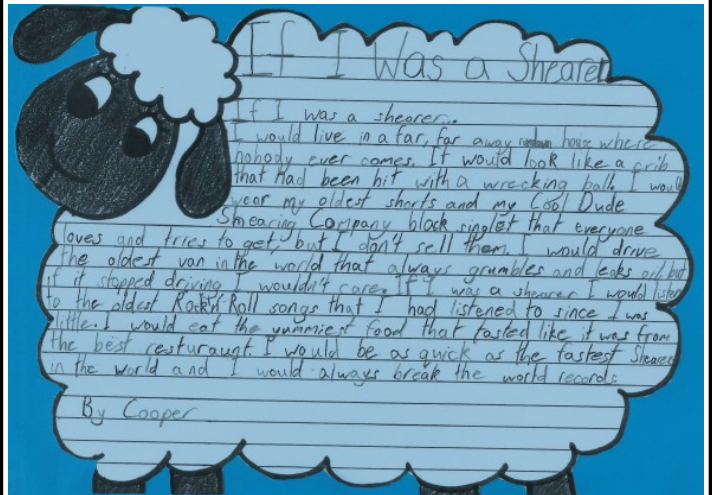 If I Was a Shearer
If I was a shearer...
I would live in a far, far away rundown house where
nobody ever comes. It would look like a crib
that Had been hit with a wrecking ball. I would
wear my oldest shorts and my Cool Dude
Shearing Company black singlet that everyone
loves and tries to get, but I don't sell them. I would drive
the oldest van in the world that always grumbles and leaks oil, but
if it stopped driving I wouldn't care. If I was a shearer I would listen
to the oldest Rock'n'Roll songs that I had listened to since I was
little. I would eat the yummiest food that tasted like it was from
the best resturaugt. I would be as quick as the fastest Shearer
in the world and I would always break the world records
By Cooper